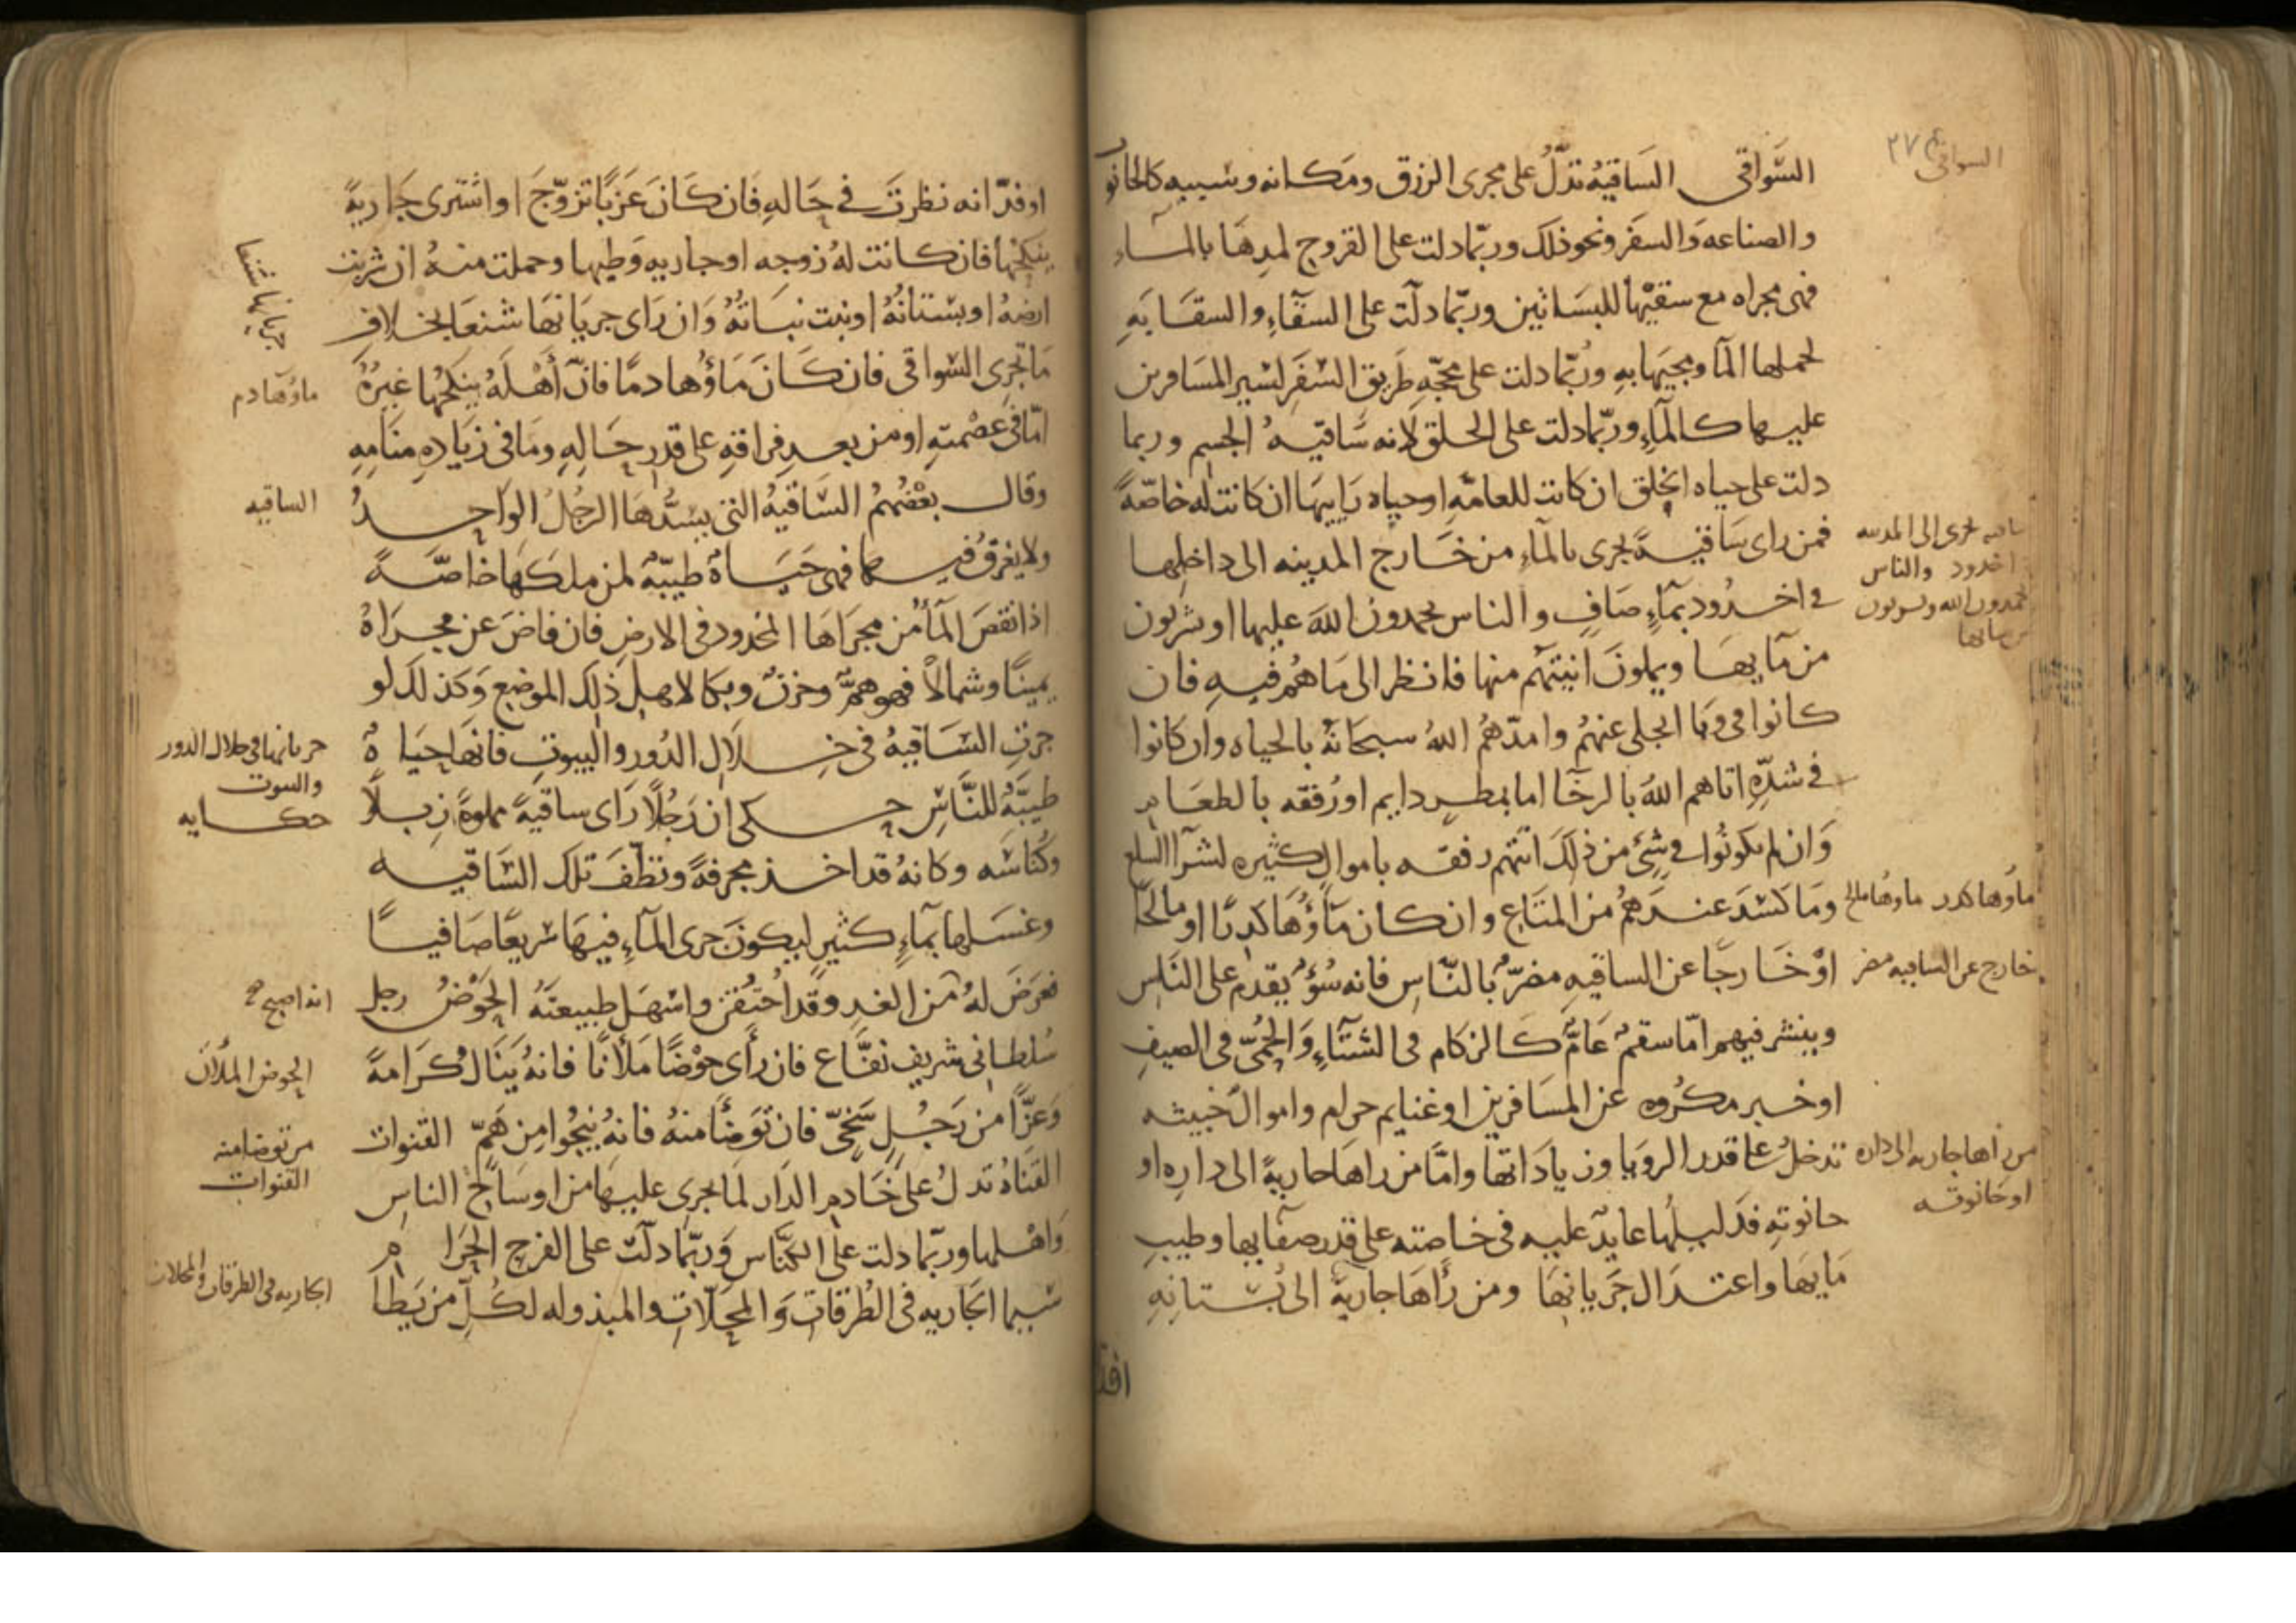 السواقي ٢٧٤
السَّواقي السَاقيَهُ تدُلُّ على مجرى الرزق ومَكانه وسببه كالحانوت
والصناعه وَالسفَر ونحو ذلك وربّما دلت على القروح لمدِهَا بالماء
فهى مجراه مع سقيْها للبسَاتين وربّما دلّت على السقّآءِ والسقَايَهِ
لحملها المآ ومجيَها بهِ ورُبّما دلت على محجّهِ طَريق السَفَر لسَير المسَافرين
عليها كالمآءِ وربّما دلت على الحلق لانه سَاقيَهُ الجسِم وربما
دلت على حياه الخلق ان كانت للعامّهِ او حياه رَاييهَا ان كانت له خاصّةً
فمن راى سَاقيةً تجرى بالمآءِ من خارج المدينه الى داخلها
في اخدُود بمآءٍ صَافٍ والناس يحمدونَ اللهَ عليها او يشربون
من مَايهَا ويملونَ انيتهُم منها فانظر الى مَا هُم فيهِ فان
كانوا في وبَا انجلى عنهُم وامدّهُم اللهُ سبحَانهُ بالحياه وان كانوا
في شدّهٍ اتاهم اللهُ بالرخآ اما بمطرٍ دايم او رُفقه بالطعَام
وَان لم يكونُوا في شئٍ من ذلكَ اتتهُم رفقه باموالٍ كثيره لشرآ السلع
ومَا كسَدَ عندَهُم من المتَاع وان كان مَآؤُهَا كدِرًا او مالحًا
اوْ خَارجًا عن الساقيهِ مضرٌّ بالنّاسِ فانه سُوءٌ يقدم على النَاس
وينشر فيهم امّا سقمٌ عَامٌّ كَالزكام في الشتآءِ وَالحُمّى في الصيفِ
او خبر مكرُوه عن المسَافرين او غنايم حرام واموال خبيثه
تدخلُ على قدر الرويا وزيادَاتها وامَّا من راهَا جاريةً الى دارِه او
حانوتهِ فدَليلُها عايدٌ عليه في خاصته على قدر صفايها وطيبِ
مَايهَا واعتدَال جَرَيانِهَا ومن رأَهَا جاريةً الى بُستانِهِ
سَاقيه تجرى الى المدينه
اخدود والناس
يحمدون الله ويشربون
من مايها
ماوها كدر ماوها مالح
خارج عن الساقيه مضر
من راها جاريه الى داره
او حانوته
او فدّانه نظرتَ في حَالهِ فَان كَانَ عَزبًا تزوّجَ او اشترى جَاريةً
ينكحُها فان كانت لهُ زوجه او جاريه وَطيها وحملت منهُ ان شربت
ارضهُ او بسْتانُهُ او نبت نبَاتهُ وَان رَاى جريَانهَا شنعًا بخلاف
مَا تجرى السَواقي فان كَانَ مَاؤُها دمًا فانّ أَهْلَهُ ينكحُها غيرُهُ
امّا في عصْمتهِ او من بعدِ فراقهِ على قدر حَالهِ ومَا في زيَادهِ منَامهِ
وقال بعْضُهمُ السَّاقيهُ التي يسُدُّهَا الرجُلُ الواحِدُ
ولا يغرَقُ فيها فهى حَيَاةٌ طيبّهٌ لمن ملكَهَا خاصَّةً
اذا نقصَ المآءُ من مجرَاهَا المخدود في الارضِ فان فاضَ عن مجراهُ
يمينًا وشمالاً فهو همٌّ وحزنٌ وبكا لاهلِ ذلِك الموضعِ وَكذلكَ لو
جرَتِ السَّاقيهُ في خِلاَلِ الدُور والبيوتِ فانهَا حيَاهٌ
طيبّهٌ للنَّاسِ حكى ان رَجُلاً رَاى ساقيةً مملوةً زبلاً
وكُناسَه وكانهُ قد اخذ مجرفةً ونظّفَ تلك السَّاقيه
وغسَلها بمآءٍ كثيرٍ ليكونَ جرى المآءِ فيهَا سريعًا صَافيًا
فعرَضَ لهُ من الغدِ وقد احتُقنَ واسْهَل طبيعتَهُ الحَوْضُ رجل
سُلطاني شريف نفّاع فان رأَى حوْضًا مَلأنًا فانهُ ينَال كرَامةً
وَعزًّا من رَجُلٍ سَخيّ فان توَضأَ منهُ فانهُ ينجُوا من هَمّ القنوات
القنَاهُ تدلُ على خَادِم الدَار لما يجرى عليهَا من اوسَاخ الناس
وَاهْلها وربّما دلت على الكنَّاس وَربّما دلّت على الفرج الحرَام
سَيما الجَاريه في الطُرقاتِ وَالمحَلاّتِ والمبذوله لكُلِّ من يَطأ
جريانها شنعا
ماؤها دم
الساقيه
جريانها في خلال الدور
والبيوت
حكايه
انه اصبح
الحوض الملآن
من توضا منه
القنوات
الجاريه في الطرقات والمحلات
افد